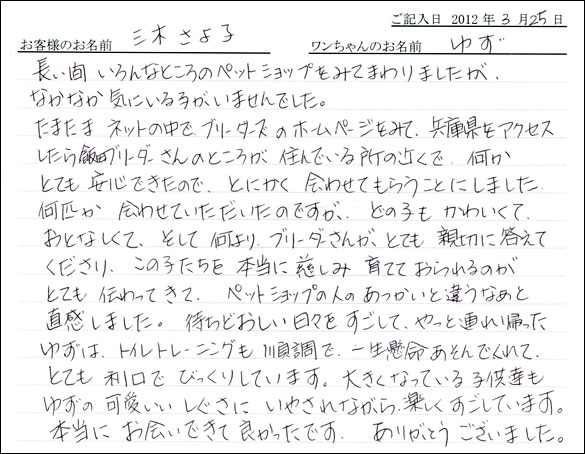 ご記入日 2012 年 3 月 25 日
お客様のお名前 三木 さよ子 ワンちゃんのお名前 ゆず
長い間 いろんなところのペットショップをみてまわりましたが、
なかなか気にいる子がいませんでした。
たまたま ネットの中で、ブリーダーズのホームページをみて、兵庫県をアクセス
したら飯田ブリーダーさんのところが 住んでいる所の近くで、何か
とても 安心できたので、とにかく 会わせてもらうことにしました。
何匹か 会わせていただいたのですが、どの子も かわいくて、
おとなしくて、そして 何より、ブリーダーさんが、とても 親切に答えて
くださり、この子たちを 本当に 慈しみ 育てておられるのが
とても 伝わってきて、ペットショップの人のあつかいと違うなあと
直感しました。待ちどおしい日々をすごして、やっと連れ帰った
ゆずは、トイレトレーニングも 順調で、一生懸命あそんでくれて、
とても 利口で びっくりしています。大きくなっている子供達も
ゆずの 可愛いい しぐさに いやされながら、楽しくすごしています。
本当に お会いできて 良かったです。 ありがとう ございました。